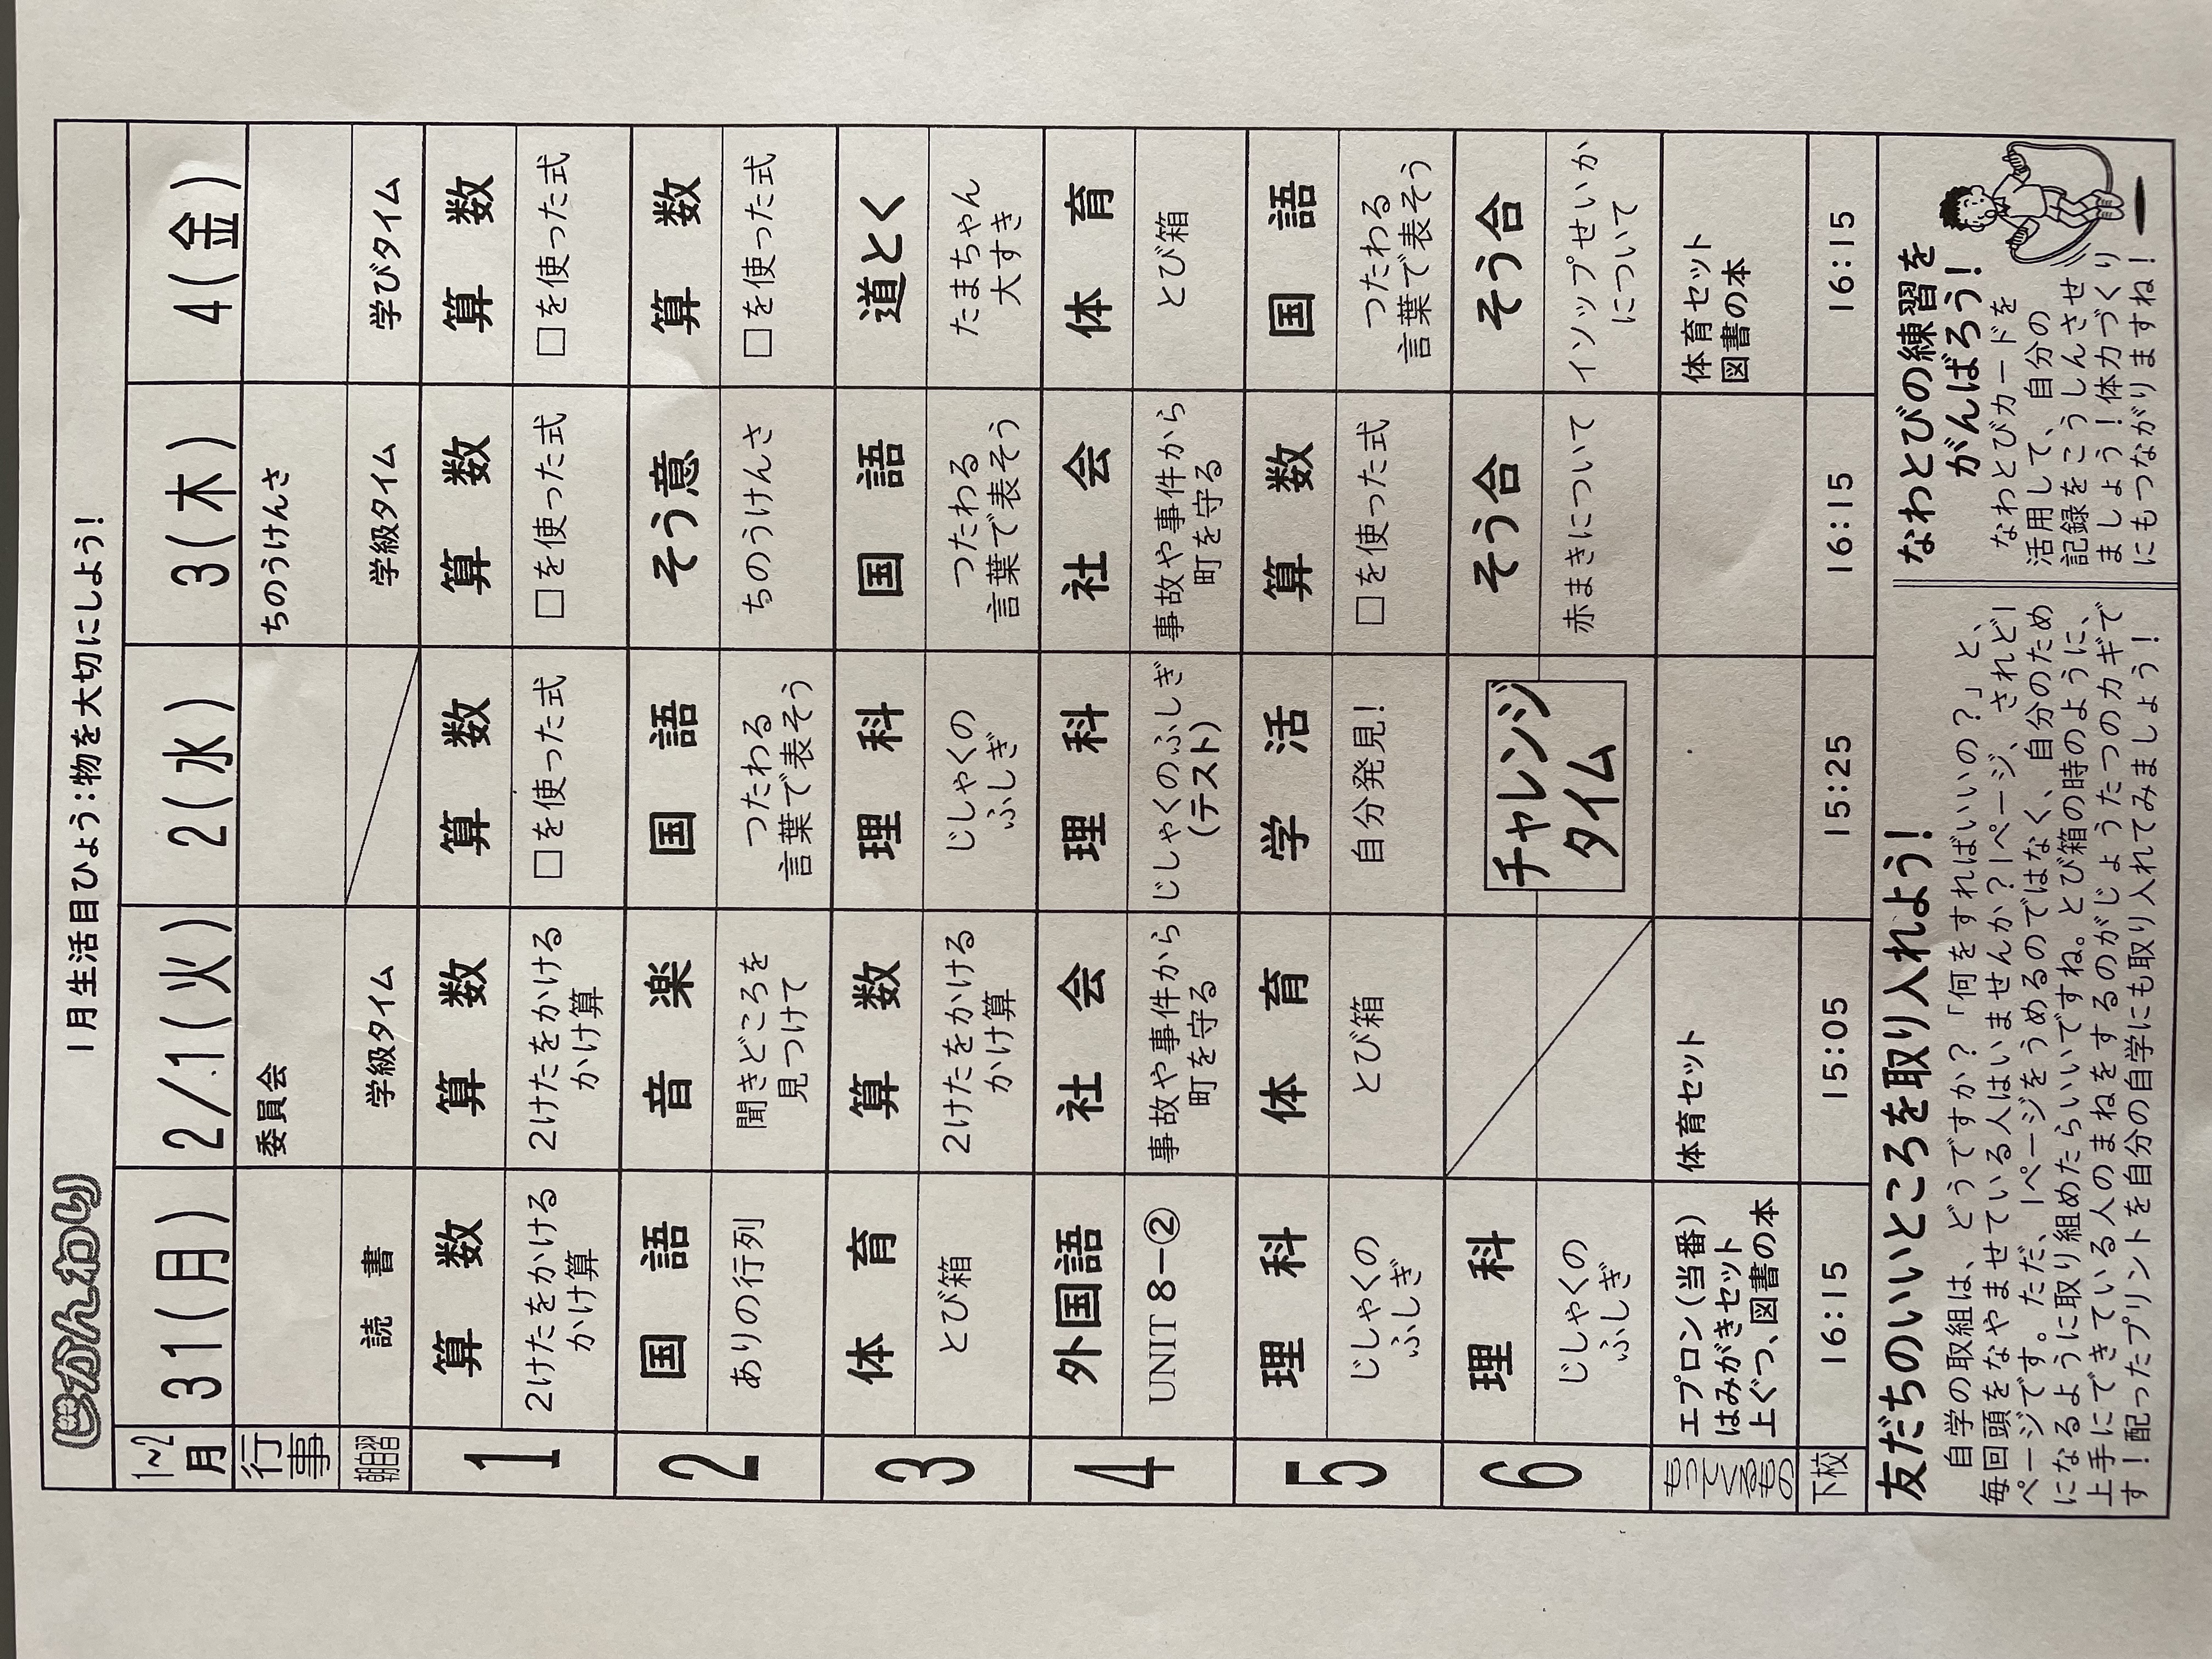 じかんわり　1月生活目ひょう：物を大切にしよう！
1~2月　31(月)　2/1(火)　2(水)　3(木)　4(金)
行事　委員会　ちのうけんさ
朝自習　読書　学級タイム　学級タイム　学びタイム
1　算数　算数　算数　算数　算数
2けたをかける　2けたをかける　□を使った式　□を使った式　□を使った式
かけ算　かけ算
2　国語　音楽　国語　そう意　算数
ありの行列　聞きどころを　つたわる　ちのうけんさ　□を使った式
見つけて　言葉で表そう
3　体育　算数　理科　国語　道とく
とび箱　2けたをかける　じしゃくの　つたわる　たまちゃん
かけ算　ふしぎ　言葉で表そう　大すき
4　外国語　社会　理科　社会　体育
UNIT 8-②　事故や事件から　じしゃくのふしぎ　事故や事件から　とび箱
町を守る　(テスト)　町を守る
5　理科　体育　学活　算数　国語
じしゃくの　とび箱　自分発見！　□を使った式　つたわる
ふしぎ　言葉で表そう
6　理科　チャレンジ　そう合　そう合
じしゃくの　タイム　赤まきについて　イソップせいか
ふしぎ　について
もってくるもの　エプロン(当番)　体育セット　体育セット
はみがきセット　図書の本
上ぐつ、図書の本
下校　16:15　15:05　15:25　16:15　16:15
友だちのいいところを取り入れよう！
自学の取組は、どうですか？「何をすればいいの？」と、
毎回頭をなやませている人はいませんか？1ページ、されど1
ページです。ただ、1ページをうめるのではなく、自分のため
になるように取り組めたらいいですね。とび箱の時のように、
上手にできている人のまねをするのがじょうたつのカギで
す！配ったプリントを自分の自学にも取り入れてみましょう！
なわとびの練習を
がんばろう！
なわとびカードを
活用して、自分の
記録をこうしんさせ
ましょう！体力づくり
にもつながりますね！